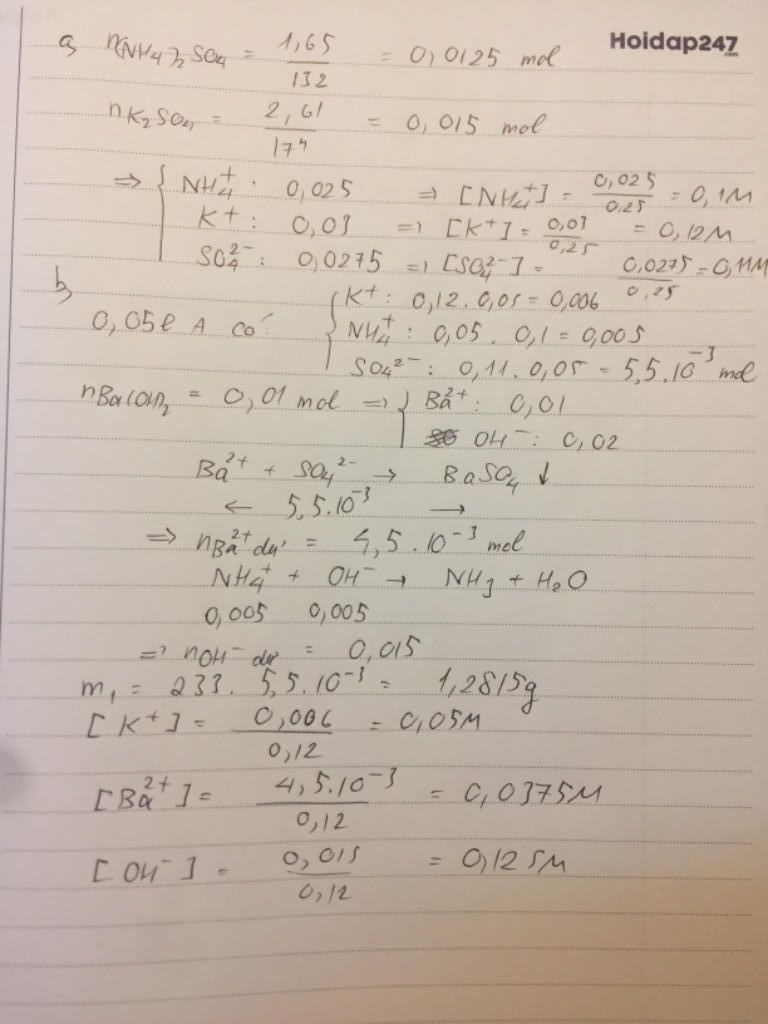 Hoidap247
.com
a, n(NH4)2SO4 = 1,65/132 = 0,0125 mol
nK2SO4 = 2,61/174 = 0,015 mol
⇒ { NH4+ : 0,025 ⇒ [NH4+] = 0,025/0,25 = 0,1M
K+ : 0,03 ⇒ [K+] = 0,03/0,25 = 0,12M
SO4^2- : 0,0275 ⇒ [SO4^2-] = 0,0275/0,25 = 0,11M
b,
0,05l A có { K+ : 0,12 . 0,05 = 0,006
NH4+ : 0,05 . 0,1 = 0,005
SO4^2- : 0,11 . 0,05 = 5,5.10^-3 mol
nBa(OH)2 = 0,01 mol ⇒ { Ba^2+ : 0,01
OH- : 0,02
Ba^2+ + SO4^2- → BaSO4 ↓
← 5,5.10^-3 →
⇒ nBa^2+ dư = 4,5.10^-3 mol
NH4+ + OH- → NH3 + H2O
0,005 0,005
⇒ nOH- dư = 0,015
m1 = 233 . 5,5.10^-3 = 1,2815g
[K+] = 0,006/0,12 = 0,05M
[Ba^2+] = 4,5.10^-3/0,12 = 0,0375M
[OH-] = 0,015/0,12 = 0,125M